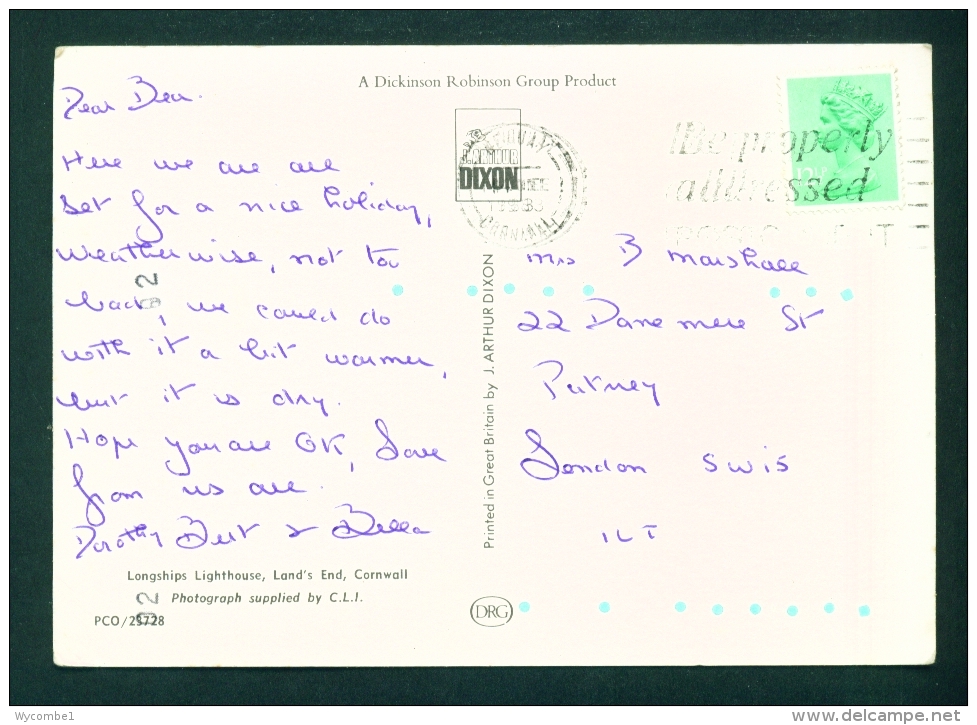 A Dickinson Robinson Group Product
Dear Bea.
Here we are all
set for a nice holiday,
weatherwise, not too
bad, we could do
with it a bit warmer,
but it is dry.
Hope you are OK, Love
from us all.
Dorothy Bert & Bella
Longships Lighthouse, Land's End, Cornwall
Photograph supplied by C.L.I.
PCO/25728
J. ARTHUR
DIXON
NEWQUAY
CORNWALL
Be properly
addressed
Printed in Great Britain by J. ARTHUR DIXON
Mrs B Marshall
22 Danemere St
Putney
London SW15
1LT
DRG
02
02
Wycombe1
www.delcampe.net